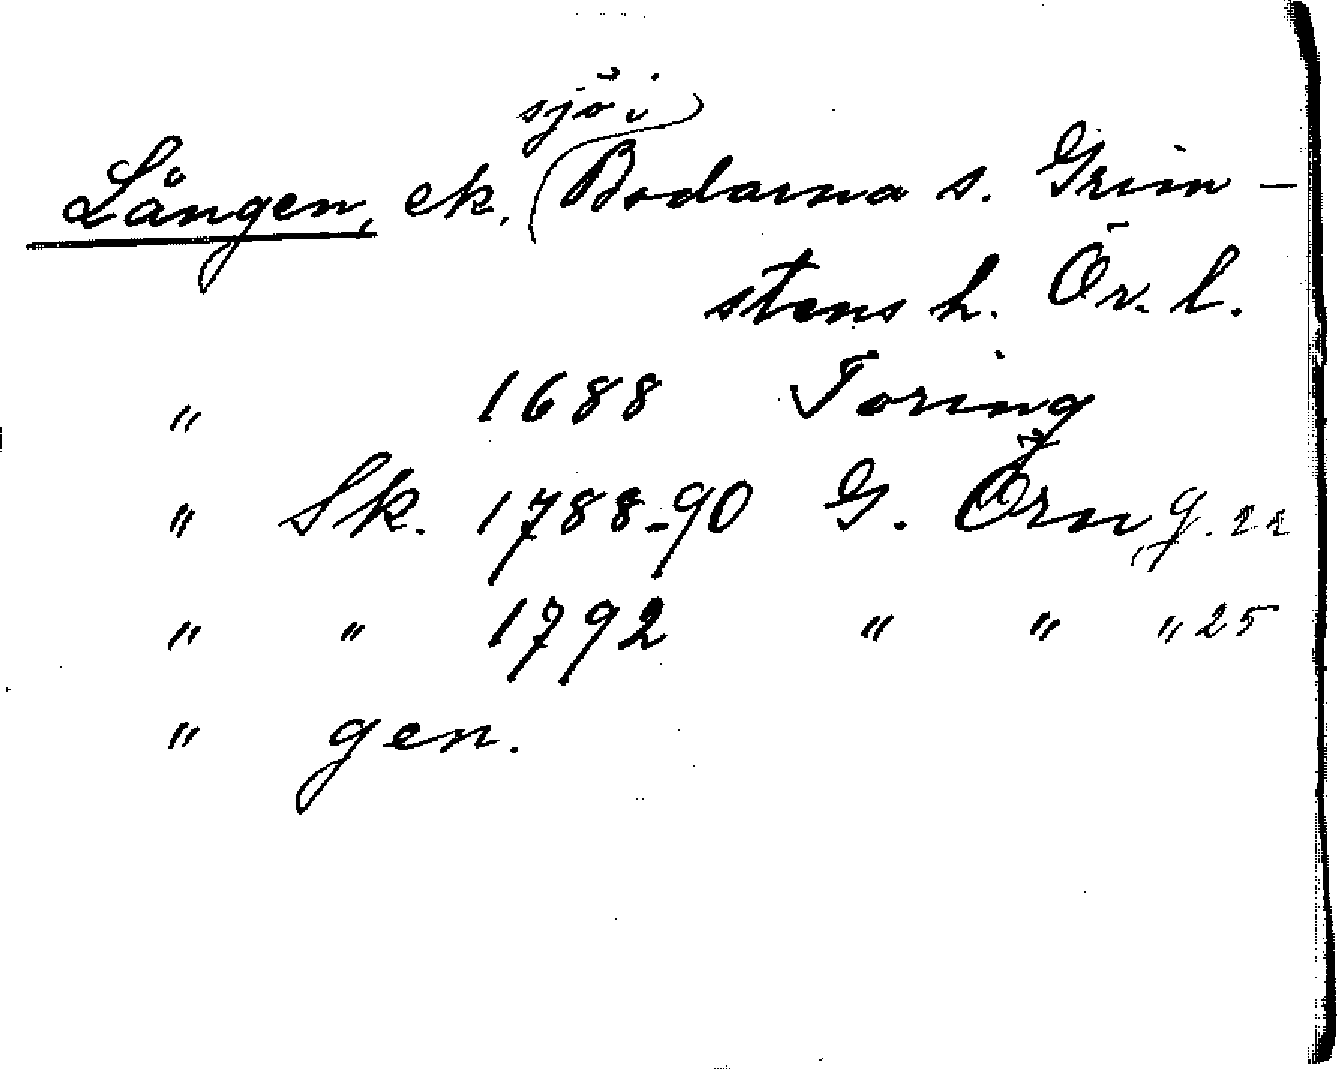 Lången, ek. sjö i Bodarna s. Grim-
stens h. Ör. l.
" 1688 Toring
" Sk. 1788-90 G. Örn, g. 22
" " 1792 " " " 25
" gen.